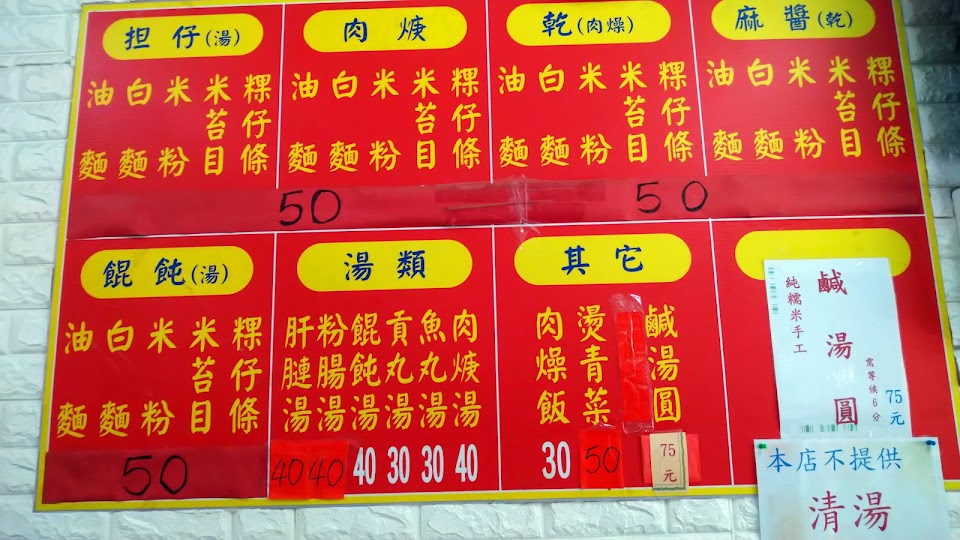 担仔(湯)
油麵 白麵 米粉 米苔目 粿仔條
肉焿
油麵 白麵 米粉 米苔目 粿仔條
乾(肉燥)
油麵 白麵 米粉 米苔目 粿仔條
麻醬(乾)
油麵 白麵 米粉 米苔目 粿仔條
50
50
餛飩(湯)
油麵 白麵 米粉 米苔目 粿仔條
50
湯類
肝腱湯 粉腸湯 餛飩湯 貢丸湯 魚丸湯 肉焿湯
40 40 40 30 30 40
其它
肉燥飯 燙青菜 鹹湯圓
30 50 75元
鹹湯圓
純糯米手工
需等候6分
75元
本店不提供
清湯